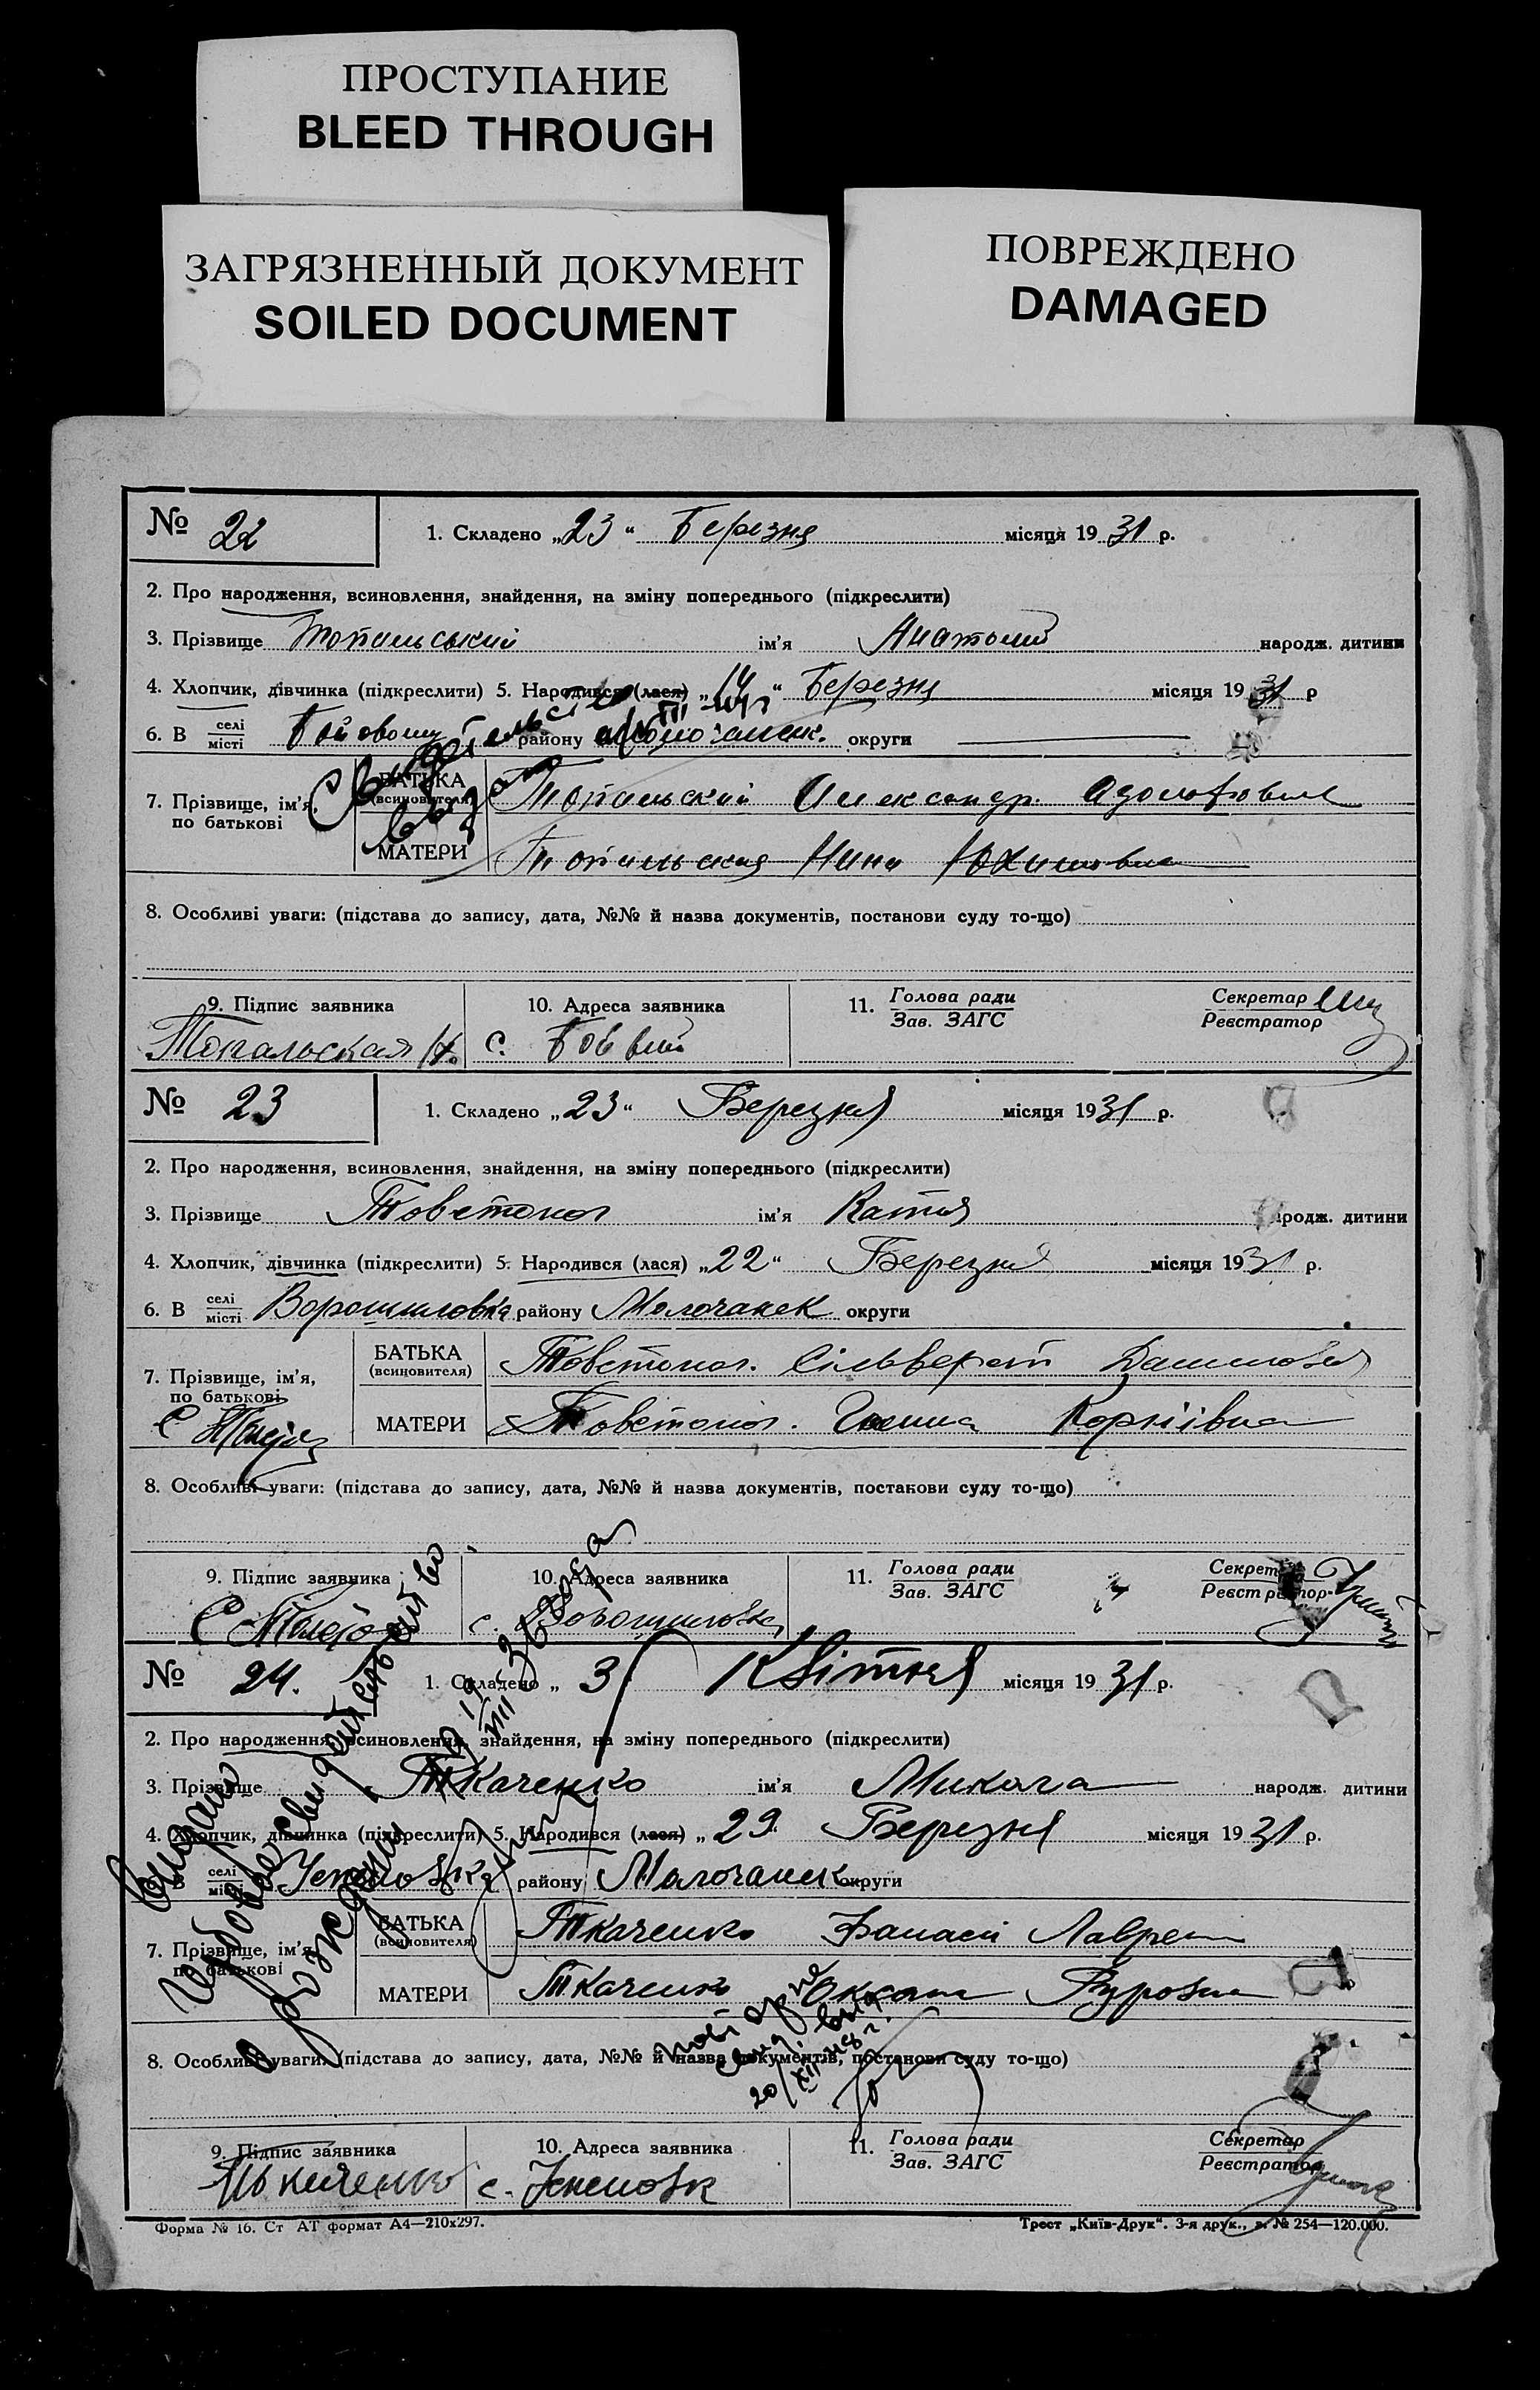 ПРОСТУПАНИЕ
BLEED THROUGH
ЗАГРЯЗНЕННЫЙ ДОКУМЕНТ
SOILED DOCUMENT
ПОВРЕЖДЕНО
DAMAGED
№ 22
1. Складено „23“ Березня місяця 1931 р.
2. Про народження, всиновлення, знайдення, на зміну попереднього (підкреслити)
3. Прізвище Топальський ім’я Анатолий народж. дитини
4. Хлопчик, дівчинка (підкреслити) 5. Народився (лася) „14“ Березня місяця 1931 р
6. В селі місті району округи
Свидетельство
7. Прізвище, ім’я, по батькові
БАТЬКА (всиновителя) Топальский Александр Адольфович
МАТЕРИ Топальская Нина Юхимовна
8. Особливі уваги: (підстава до запису, дата, №№ й назва документів, постанови суду то-що)
9. Підпис заявника
10. Адреса заявника
11. Голова ради Зав. ЗАГС
Секретар Реєстратор
Топальская Н. с.
№ 23
1. Складено „23“ Березня місяця 1931 р.
2. Про народження, всиновлення, знайдення, на зміну попереднього (підкреслити)
3. Прізвище Товстоног ім’я Катя народж. дитини
4. Хлопчик, дівчинка (підкреслити) 5. Народився (лася) „22“ Березня місяця 1931 р.
6. В селі місті Ворошиловка району Молочанск округи
7. Прізвище, ім’я, по батькові
БАТЬКА (всиновителя) Товстоног. Сільверст Данилович
МАТЕРИ Товстоног. Корніівна
8. Особливі уваги: (підстава до запису, дата, №№ й назва документів, постанови суду то-що)
9. Підпис заявника
10. Адреса заявника
11. Голова ради Зав. ЗАГС
Секретар Реєстратор
с. Ворошиловка
№ 24.
1. Складено „3 Квітня місяця 1931 р.
2. Про народження, всиновлення, знайдення, на зміну попереднього (підкреслити)
3. Прізвище Ткаченко ім’я Микола народж. дитини
4. Хлопчик, дівчинка (підкреслити) 5. Народився (лася) „29 Березня місяця 1931 р.
6. В селі місті Успеновка району Молочанск округи
7. Прізвище, ім’я, по батькові
БАТЬКА (всиновителя) Ткаченко Панасій Лаврен
МАТЕРИ Ткаченко Оксана
Выдано
Гербовое свидетельство
о рождении
повторне
свид. вид
20/XII 48 г.
8. Особливі уваги: (підстава до запису, дата, №№ й назва документів, постанови суду то-що)
9. Підпис заявника
10. Адреса заявника
11. Голова ради Зав. ЗАГС
Секретар Реєстратор
Ткаченко с. Успеновк
Форма № 16. Ст АТ формат А4—210х297.
Трест „Київ-Друк“. 3-я друк., з. № 254—120.000.